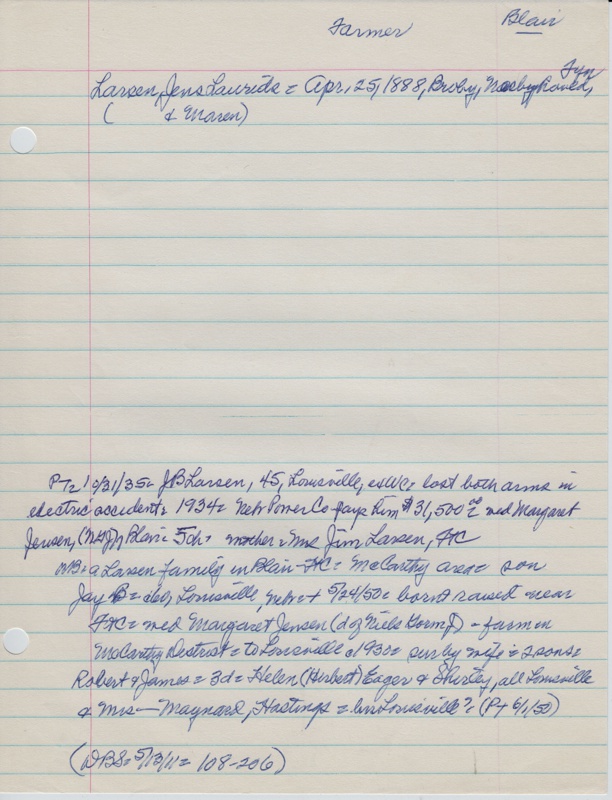 Farmer Blair
Fyn
Larsen, Jens Laurids = Apr. 25, 1888, Broby,
( & Maren)
10/31/35= JB Larsen, 45, Louisville, lost both arms in
electric accident= 1934= Neb Power Co pays him $31,500 00 = wed Margaret
Jensen, Blair= 5ch= mother= Mrs Jim Larsen, FC
NB= a Larsen family in Blair-FC= McCarthy area= son
Jay B= of Louisville, Neb= + 5/24/50= born & raised near
FC= wed Margaret Jensen (d of Niels Gorm J) - farm in
McCarthy District= to Louisville c1930= sur by wife= 2 sons=
Robert & James= 3d= Helen (Herbert) Eager & Shirley, all Louisville
& Mrs — Maynard, Hastings = bur Louisville?= (PT 6/1/50)
(DBS= 5/13/11= 108-206)